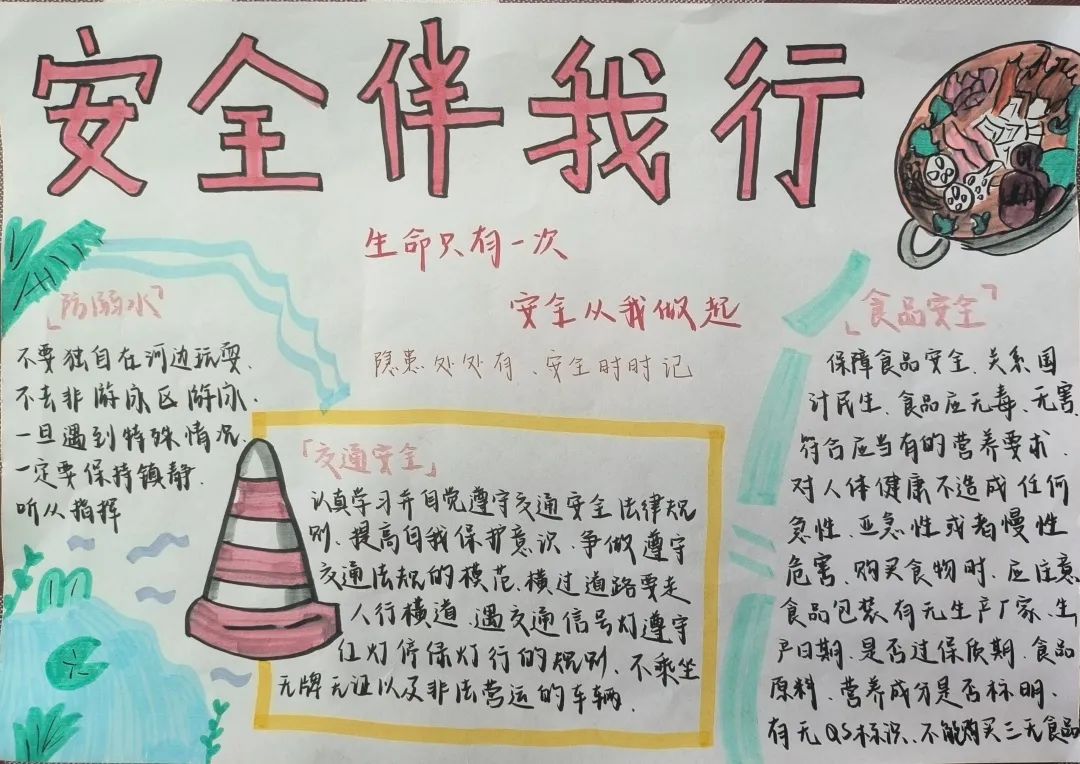 安全伴我行
生命只有一次
安全从我做起
隐患处处有、安全时时记
「防溺水」
不要独自在河边玩耍.
不去非游泳区游泳.
一旦遇到特殊情况.
一定要保持镇静.
听从指挥
「交通安全」
认真学习并自觉遵守交通安全法律规
则、提高自我保护意识、争做遵守
交通法规的模范、横过道路要走
人行横道、遇交通信号灯遵守
红灯停绿灯行的规则、不乘坐
无牌无证以及非法营运的车辆.
「食品安全」
保障食品安全、关系国
计民生、食品应无毒、无害、
符合应当有的营养要求.
对人体健康不造成任何
急性、亚急性或者慢性
危害、购买食物时、应注意
食品包装有无生产厂家、生
产日期、是否过保质期、食品
原料、营养成分是否标明、
有无QS标识、不能购买三无食品